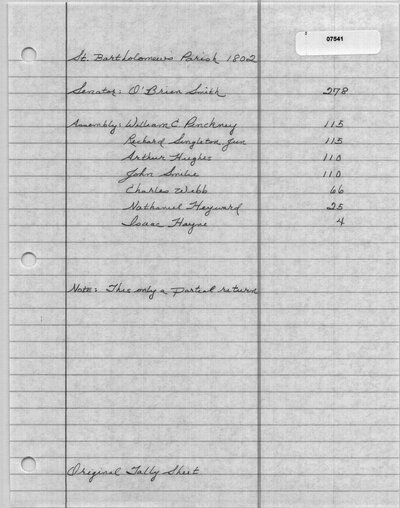 07541
St. Bartholomew's Parish 1802
Senator: O'Brien Smith 278
Assembly: William C Pinckney 115
Richard Singleton Jun 115
Arthur Hughes 110
John Smilie 110
Charles Webb 66
Nathaniel Heyward 25
Isaac Hayne 4
Note: This only a partial return
Original Tally Sheet